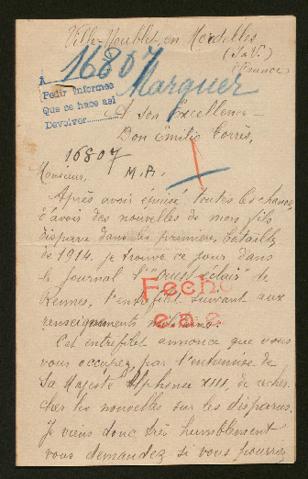 Ville-Doublet, en Mordelles
(I.&V.)
(France)
A 16807 Marquer
Pedir informes
Que ce hace asi
Devolver
A son Excellence
Don Emilio Torres,
16807 M.A.
Monsieur,
Après avoir épuisé toutes les chances
d'avoir des nouvelles de mon fils
disparu dans les premières batailles
de 1914, je trouve ce jour dans
le journal l'Ouest-éclair de
Rennes, l'entrefilet suivant aux
renseignements
Fecho
Cet entrefilet annonce que vous
vous occupez par l'entremise de
Sa Majesté Alphonse XIII, de cher
cher les nouvelles sur les disparus.
Je viens donc très humblement
vous demander si vous pourrez